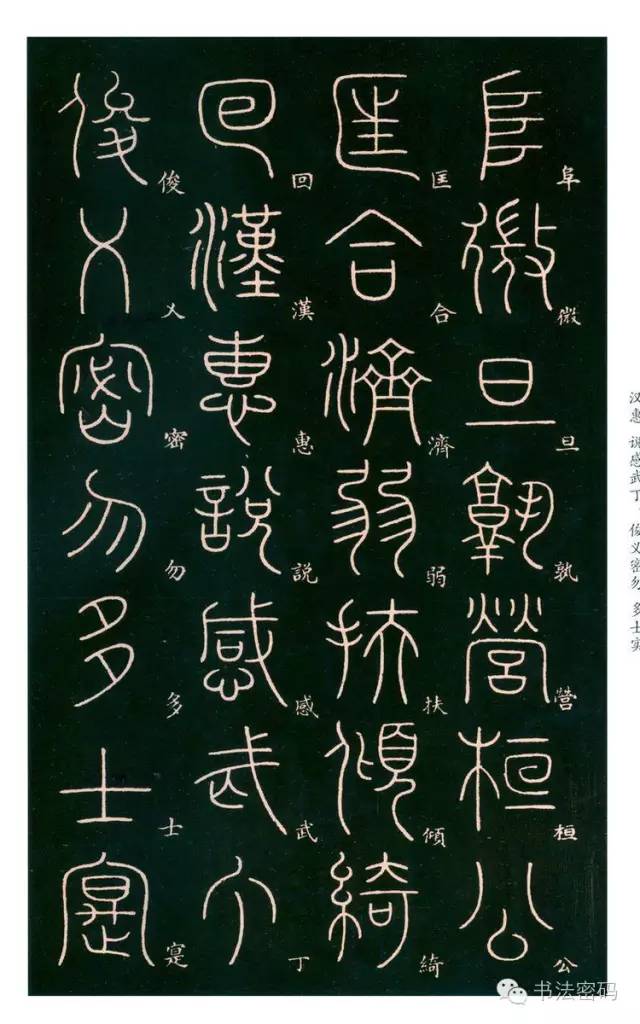 阜微旦孰營桓公
匡合濟弱扶傾綺
回漢惠說感武丁
俊乂密勿多士寔
汉惠 说感武丁 俊义密勿 多士实
书法密码